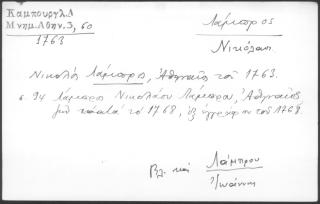 Καμπούρογλ. Δ
Μνημ. Αθην. 3, 60
1763
Λάμπρος
Νικόλαη.
Νικολός Λάμπρος, Ἀθηναῖος τοῦ 1763.
σ. 94 Λάμπρος Νικολάου Λάμπρου, Ἀθηναῖος
κατά τό 1768, ἐξ ἐγγράφου τοῦ 1768.
Βλ. καί Λάμπρου
Ἰωάννης